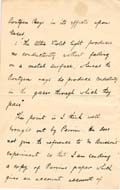 Röntgen Rays in its effects upon
gases.
1. The Ultra Violet light produces
no conductivity without falling
on a metal surface, whereas the
Rontgen rays do produce conductivity
in the gases through which they
pass.
This point is I think well
brought out by Perrin. He does
not give the reference to
experiment so that I am sending
a copy of Perrins paper which
give an account of